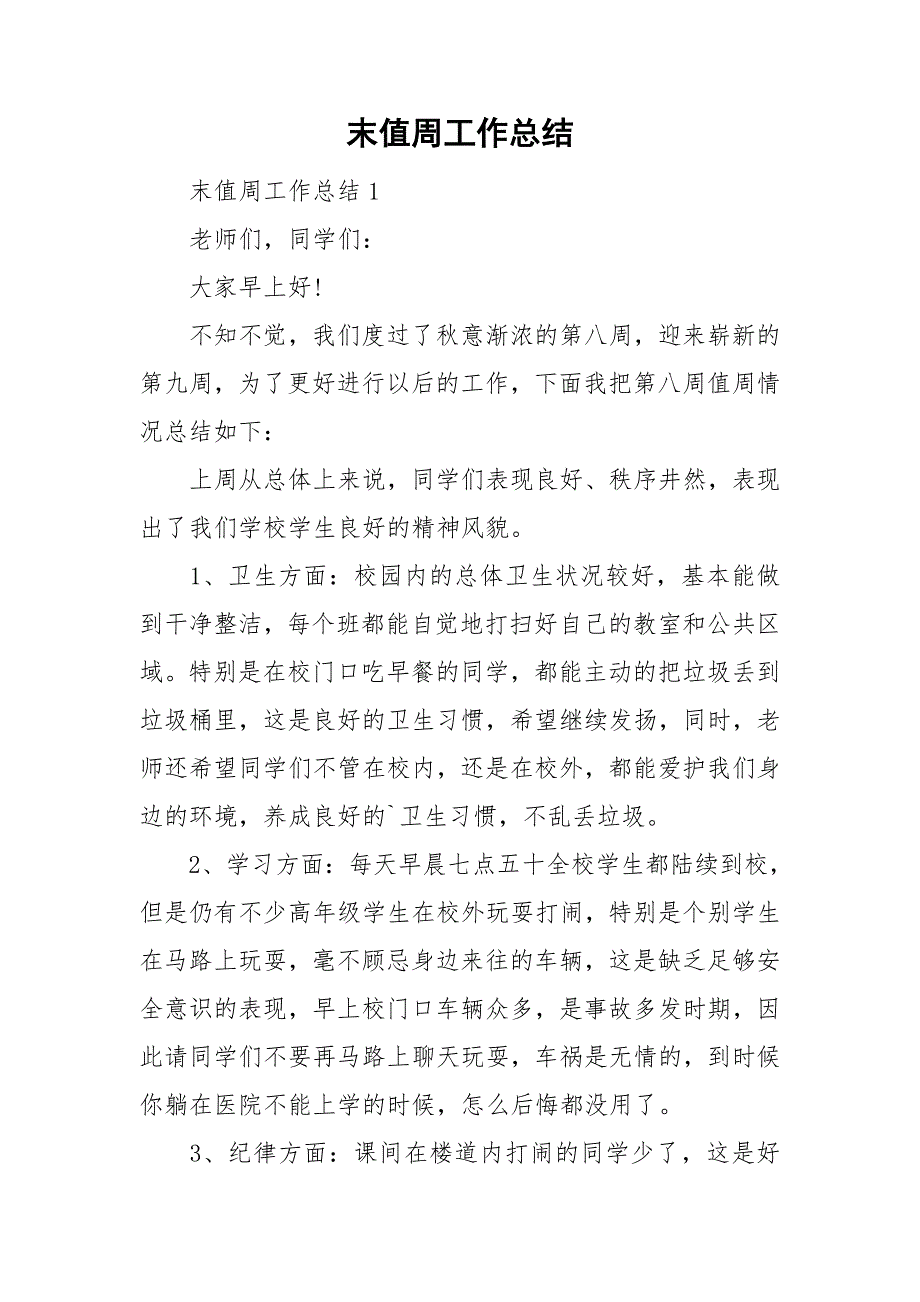 末值周工作总结
末值周工作总结1
老师们，同学们：
大家早上好！
不知不觉，我们度过了秋意渐浓的第八周，迎来崭新的
第九周，为了更好进行以后的工作，下面我把第八周值周情
况总结如下：
上周从总体上来说，同学们表现良好、秩序井然，表现
出了我们学校学生良好的精神风貌。
1、卫生方面：校园内的总体卫生状况较好，基本能做
到干净整洁，每个班都能自觉地打扫好自己的教室和公共区
域。特别是在校门口吃早餐的同学，都能主动的把垃圾丢到
垃圾桶里，这是良好的卫生习惯，希望继续发扬，同时，老
师还希望同学们不管在校内，还是在校外，都能爱护我们身
边的环境，养成良好的`卫生习惯，不乱丢垃圾。
2、学习方面：每天早晨七点五十全校学生都陆续到校，
但是仍有不少高年级学生在校外玩耍打闹，特别是个别学生
在马路上玩耍，毫不顾忌身边来往的车辆，这是缺乏足够安
全意识的表现，早上校门口车辆众多，是事故多发时期，因
此请同学们不要再马路上聊天玩耍，车祸是无情的，到时候
你躺在医院不能上学的时候，怎么后悔都没用了。
3、纪律方面：课间在楼道内打闹的同学少了，这是好